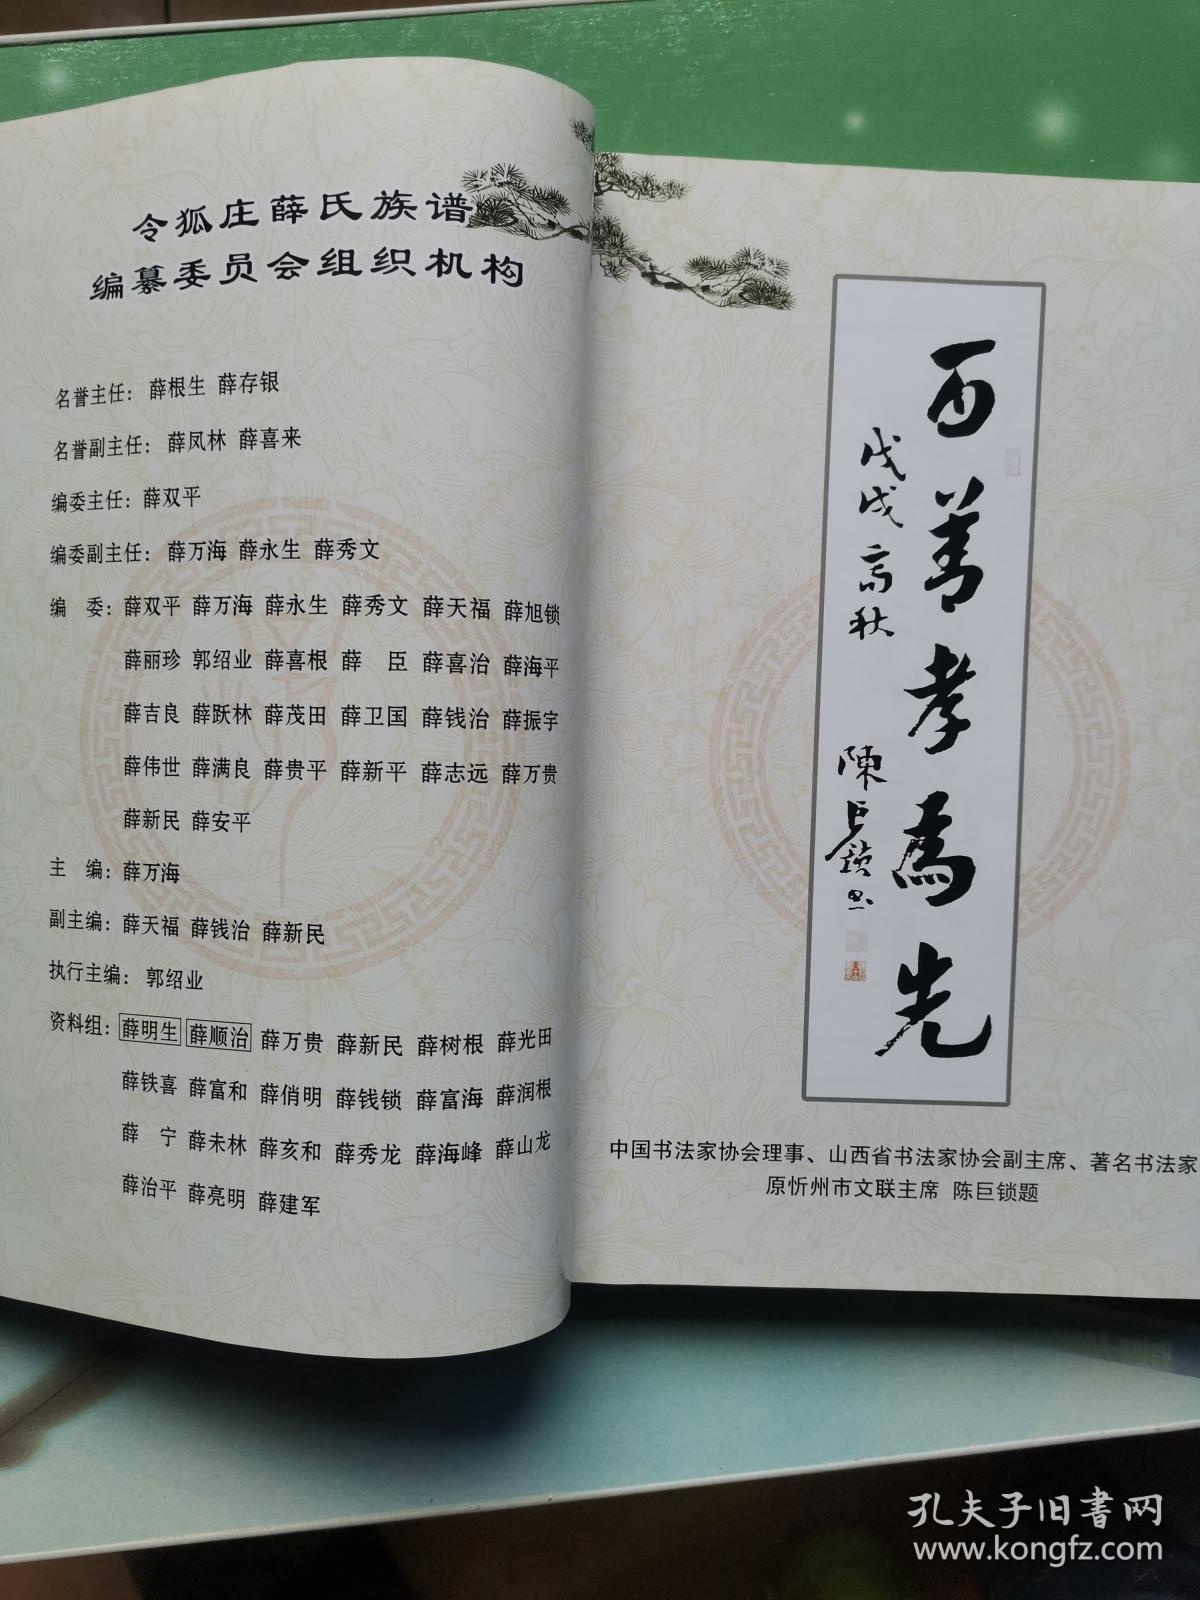 令狐庄薛氏族谱
编纂委员会组织机构
名誉主任：薛根生 薛存银
名誉副主任：薛凤林 薛喜来
编委主任：薛双平
编委副主任：薛万海 薛永生 薛秀文
编　委：薛双平 薛万海 薛永生 薛秀文 薛天福 薛旭锁
薛丽珍 郭绍业 薛喜根 薛　臣 薛喜治 薛海平
薛吉良 薛跃林 薛茂田 薛卫国 薛钱治 薛振宇
薛伟世 薛满良 薛贵平 薛新平 薛志远 薛万贵
薛新民 薛安平
主　编：薛万海
副主编：薛天福 薛钱治 薛新民
执行主编：郭绍业
资料组：薛明生 薛顺治 薛万贵 薛新民 薛树根 薛光田
薛铁喜 薛富和 薛俏明 薛钱锁 薛富海 薛润根
薛　宁 薛未林 薛亥和 薛秀龙 薛海峰 薛山龙
薛治平 薛亮明 薛建军
百善孝為先
戊戌高秋
陳巨鎖书
中国书法家协会理事、山西省书法家协会副主席、著名书法家
原忻州市文联主席 陈巨锁题
孔夫子旧書网
www.kongfz.com